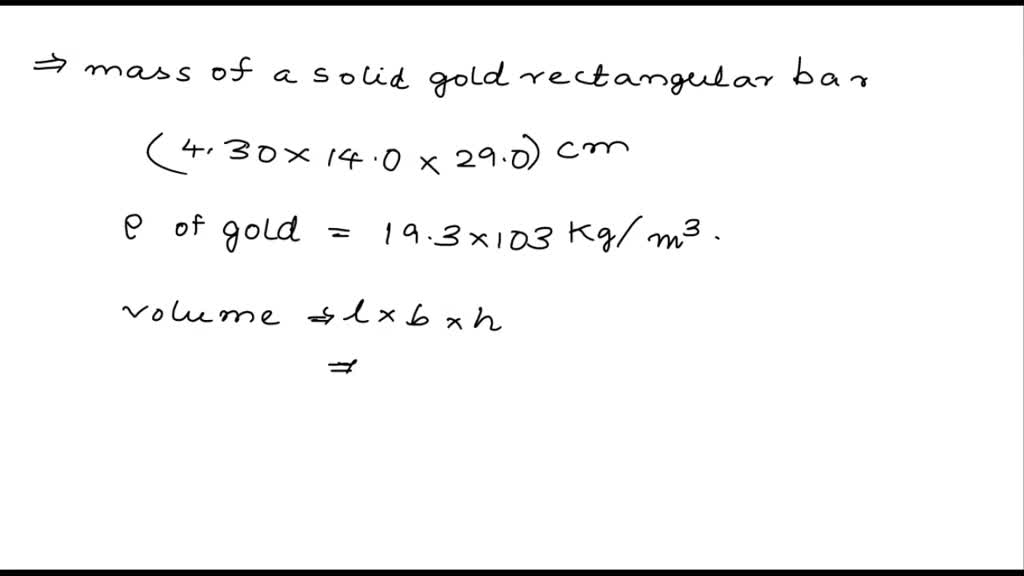 ⇒ mass of a solid gold rectangular bar
(4.30 × 14.0 × 29.0) cm
ρ of gold = 19.3 × 103 Kg/m³.
volume ⇒ l × b × h
⇒